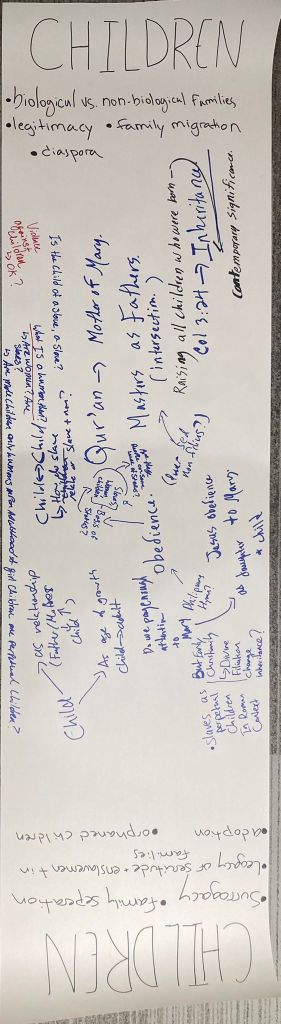 CHILDREN
• biological vs. non-biological Families
• legitimacy • family migration
• diaspora
Violence against children is OK?
Is the child of slave a slave?
What IS a human child?
Is the male children only humans after adulthood + girl children are perpetual children?
Child ↔ Child
relate slave + num?
Qur'an → Mother of Mary.
Masters as Fathers.
(intersection.)
Raising all children who were born →
Col 3:24 → Inheritance
Contemporary significance.
as relationship
(Father/Mother
child ↑)
Child
As age of growth
child → adult
Do we pay enough
attention
to Mary
obedience.
Philippians
Hymn?
Jesus obedience
to Mary
as daughter
+ child
But Early
Christianity
↳ Divine
Filiation
change
inheritance?
• Slaves as
perpetual
Children
In Roman
Context
CHILDREN
• Surrogacy • family seperation
• Legacy of servitude + enslavement in
families
• adoption • orphaned children